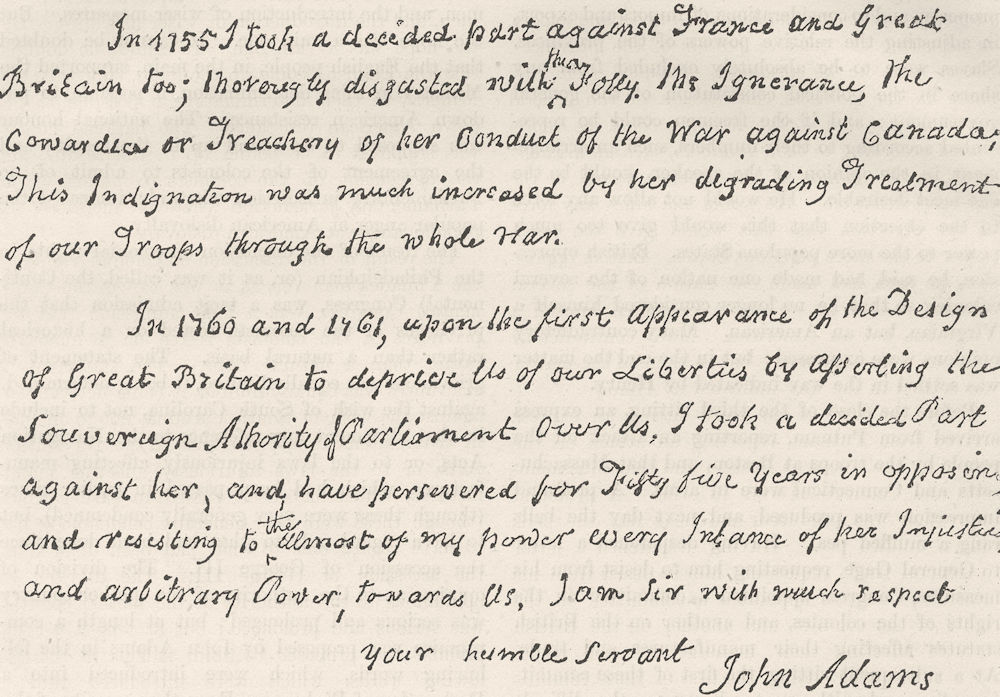 In 1755 I took a decided part against France and Great
Britain too; thorougly disgusted with their Folly. the Ignerance, the
Cowardice or Treachery of her Conduct of the War against Canada.
This Indignation was much increased by her degrading Treatment
of our Troops through the whole War.
In 1760 and 1761, upon the first Appearance of the Design
of Great Britain to deprive Us of our Liberties by Asserting the
Souvereign Athority of Parliament Over Us, I took a decided Part
against her, and have persevered for Fifty five Years in opposing
and resisting to the utmost of my power every Intance of her Injustice
and arbitrary Power, towards Us. I am Sir with much respect
your humble Servant
John Adams